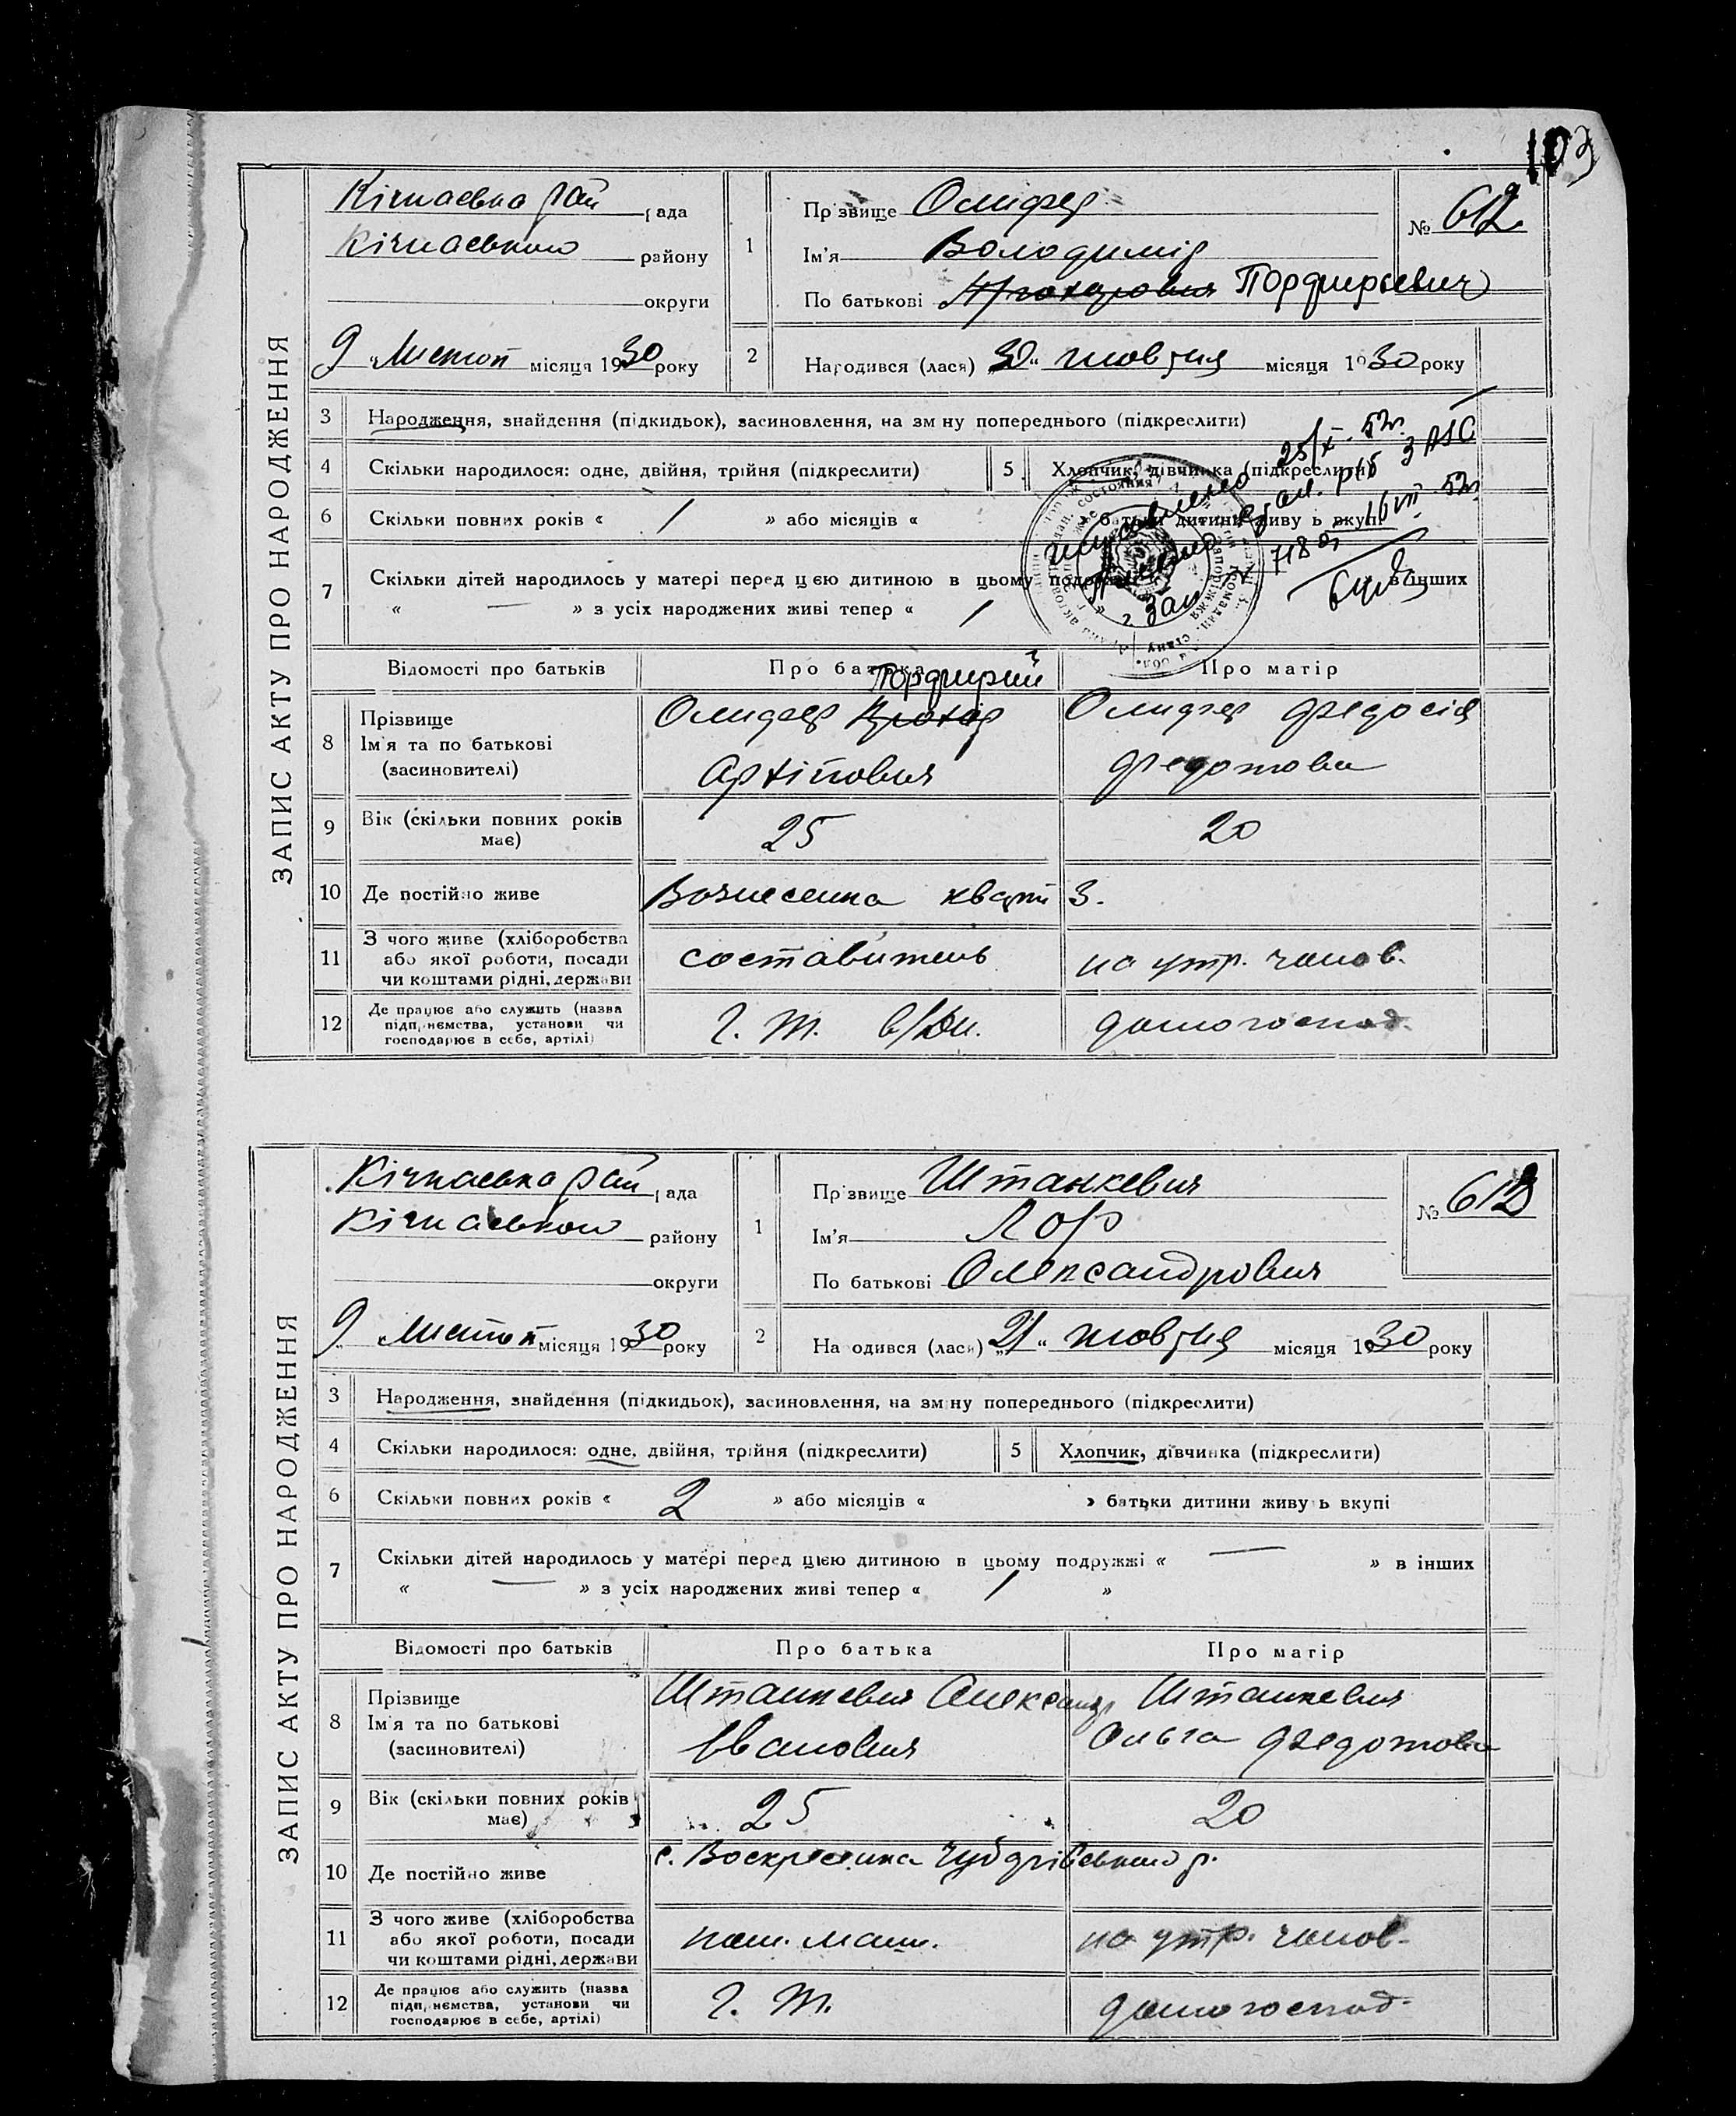 103
ЗАПИС АКТУ ПРО НАРОДЖЕННЯ
Кічкаська рай рада
Кічкаського району
округи
9 „Листоп місяця 1930 року
1
Прізвище Олифер
Ім'я Володимір
По батькові Прохорович Порфирьевич
№ 612
2
Народився (лася) „30“ жовтня місяця 1930 року
3 Народження, знайдення (підкидьок), засиновлення, на зміну попереднього (підкреслити)
4 Скільки народилося: одне, двійня, трійня (підкреслити)
5 Хлопчик, дівчинка (підкреслити)
6 Скільки повних років « 1 » або місяців « » батьки дитини живуть вкупі
7 Скільки дітей народилось у матері перед цією дитиною в цьому подружжі « » в інших
« — » з усіх народжених живі тепер « 1
25/X. 52г.
ЗАГС
16 VII 52г.
Відомості про батьків Про батька Про матір
Порфирий
8 Прізвище Ім'я та по батькові (засновителі)
Олифер Прохор
Архіпович
Олифер Федосія
Федотова
9 Вік (скільки повних років має) 25 20
10 Де постійно живе Вознесенка кварт 3.
11 З чого живе (хліборобства або якої роботи, посади чи коштами рідні, держави
составитель на утр. чолов.
12 Де працює або служить (назва підприємства, установи чи господарює в себе, артілі)
домогоспод.
ЗАПИС АКТУ ПРО НАРОДЖЕННЯ
Кічкаська рай рада
Кічкаського району
округи
9 „Листоп місяця 1930 року
1
Прізвище Штанкевич
Ім'я
По батькові Олександрович
№ 613
2
Народився (лася) „21“ жовтня місяця 1930 року
3 Народження, знайдення (підкидьок), засиновлення, на зміну попереднього (підкреслити)
4 Скільки народилося: одне, двійня, трійня (підкреслити)
5 Хлопчик, дівчинка (підкреслити)
6 Скільки повних років « 2 » або місяців « » батьки дитини живуть вкупі
7 Скільки дітей народилось у матері перед цією дитиною в цьому подружжі « — » в інших
« — » з усіх народжених живі тепер « 1 »
Відомості про батьків Про батька Про матір
8 Прізвище Ім'я та по батькові (засиновителі)
Штанкевич Олександр
Іванович
Штанкевич
Ольга Федотова
9 Вік (скільки повних років має) 25 20
10 Де постійно живе с. Воскресенка
11 З чого живе (хліборобства або якої роботи, посади чи коштами рідні, держави
пом. маш. на утр. чолов.
12 Де працює або служить (назва підприємства, установи чи господарює в себе, артілі)
домогоспод.